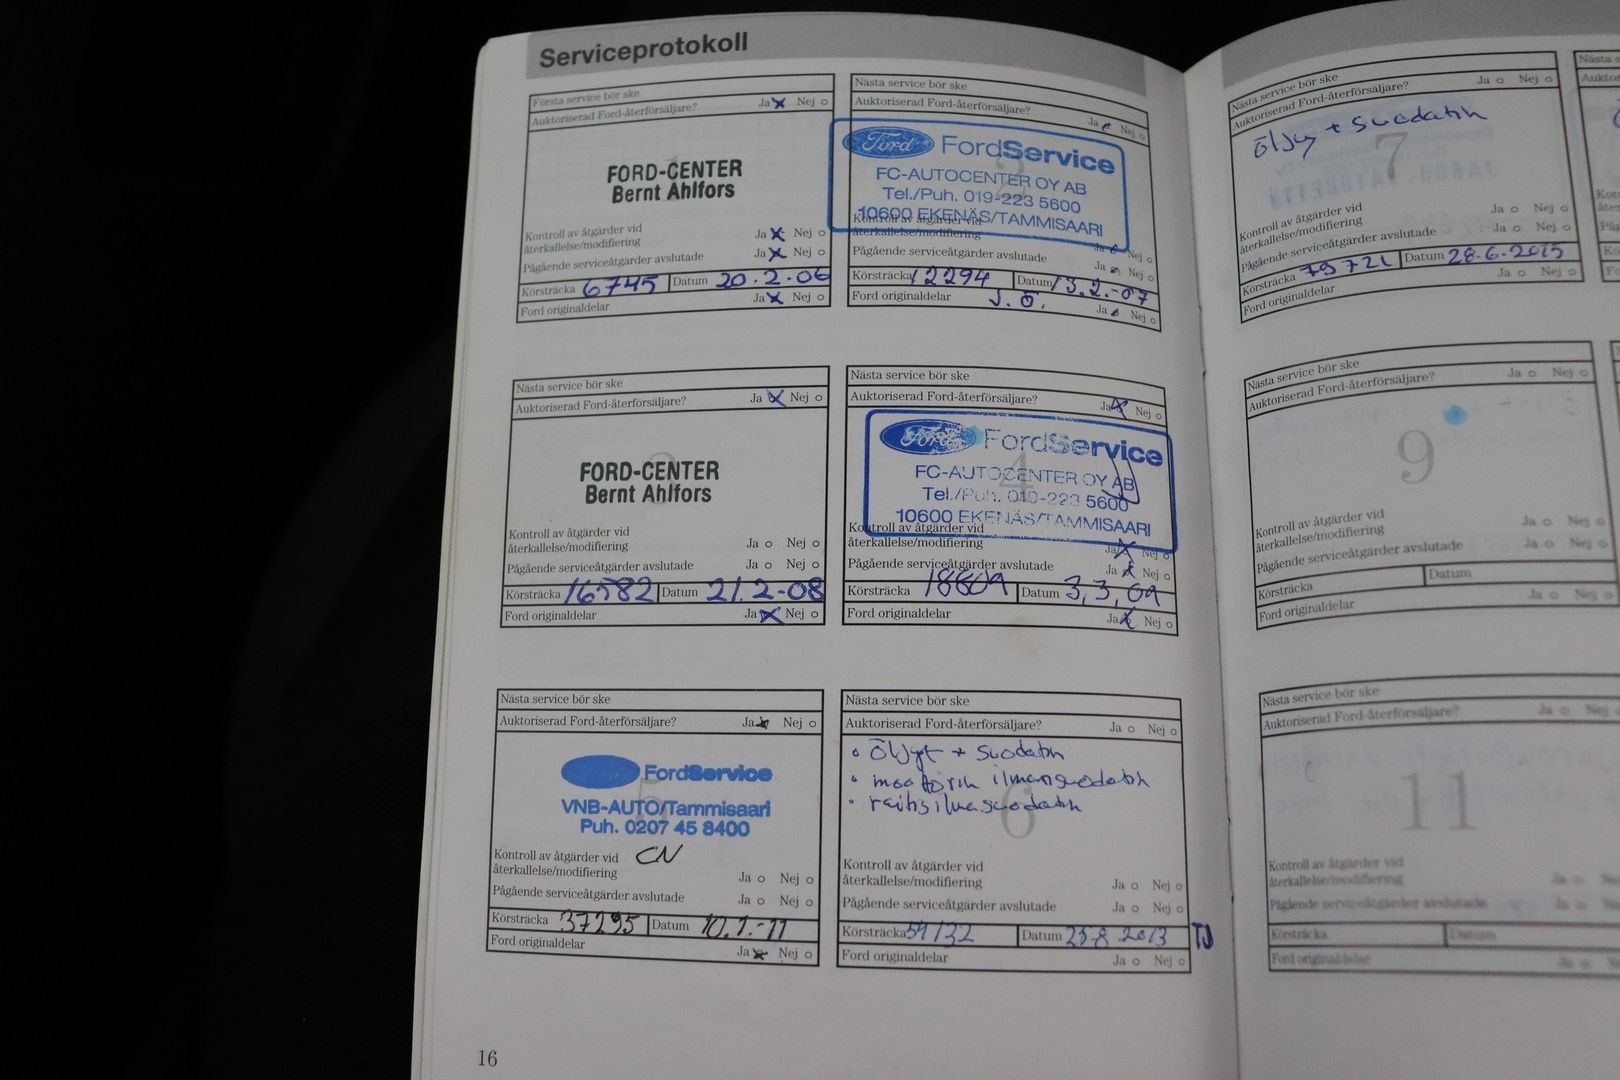 Serviceprotokoll
Första service bör ske
Auktoriserad Ford-återförsäljare? Ja Nej
1
FORD-CENTER
Bernt Ahlfors
Kontroll av åtgärder vid
återkallelse/modifiering Ja Nej
Pågående serviceåtgärder avslutade Ja Nej
Körsträcka 6745 Datum 20.2-06
Ford originaldelar Ja Nej
Nästa service bör ske
Auktoriserad Ford-återförsäljare? Ja Nej
2
Ford FordService
FC-AUTOCENTER OY AB
Tel./Puh. 019-223 5600
10600 EKENÄS/TAMMISAARI
Kontroll av åtgärder vid
återkallelse/modifiering Ja Nej
Pågående serviceåtgärder avslutade Ja Nej
Körsträcka 12294 Datum 13.2.-07
Ford originaldelar J.Ö. Ja Nej
Nästa service bör ske
Auktoriserad Ford-återförsäljare? Ja Nej
3
FORD-CENTER
Bernt Ahlfors
Kontroll av åtgärder vid
återkallelse/modifiering Ja Nej
Pågående serviceåtgärder avslutade Ja Nej
Körsträcka 16582 Datum 21.2-08
Ford originaldelar Ja Nej
Nästa service bör ske
Auktoriserad Ford-återförsäljare? Ja Nej
4
Ford FordService
FC-AUTOCENTER OY AB
Tel./Puh. 019-223 5600
10600 EKENÄS/TAMMISAARI
Kontroll av åtgärder vid
återkallelse/modifiering Ja Nej
Pågående serviceåtgärder avslutade Ja Nej
Körsträcka 18809 Datum 3,3,09
Ford originaldelar Ja Nej
Nästa service bör ske
Auktoriserad Ford-återförsäljare? Ja Nej
5
FordService
VNB-AUTO/Tammisaari
Puh. 0207 45 8400
Kontroll av åtgärder vid CN
återkallelse/modifiering Ja Nej
Pågående serviceåtgärder avslutade Ja Nej
Körsträcka 37295 Datum 10.1.-11
Ford originaldelar Ja Nej
Nästa service bör ske
Auktoriserad Ford-återförsäljare? Ja Nej
• öljyt + suodatin
• moottorin ilmansuodatin
• raitisilmasuodatin
6
Kontroll av åtgärder vid
återkallelse/modifiering Ja Nej
Pågående serviceåtgärder avslutade Ja Nej
Körsträcka 59132 Datum 23.8.2013 TJ
Ford originaldelar Ja Nej
16
Nästa service bör ske
Auktoriserad Ford-återförsäljare? Ja Nej
öljy + suodatin
7
Kontroll av åtgärder vid
återkallelse/modifiering Ja Nej
Pågående serviceåtgärder avslutade Ja Nej
Körsträcka 79721 Datum 28.6.2015
Ford originaldelar Ja Nej
Nästa service bör ske
Auktoriserad Ford-återförsäljare? Ja Nej
9
Kontroll av åtgärder vid
återkallelse/modifiering Ja Nej
Pågående serviceåtgärder avslutade Ja Nej
Körsträcka Datum
Ford originaldelar Ja Nej
Nästa service bör ske
Auktoriserad Ford-återförsäljare? Ja Nej
11
Kontroll av åtgärder vid
återkallelse/modifiering
Pågående serviceåtgärder avslutade
Körsträcka Datum
Ford originaldelar